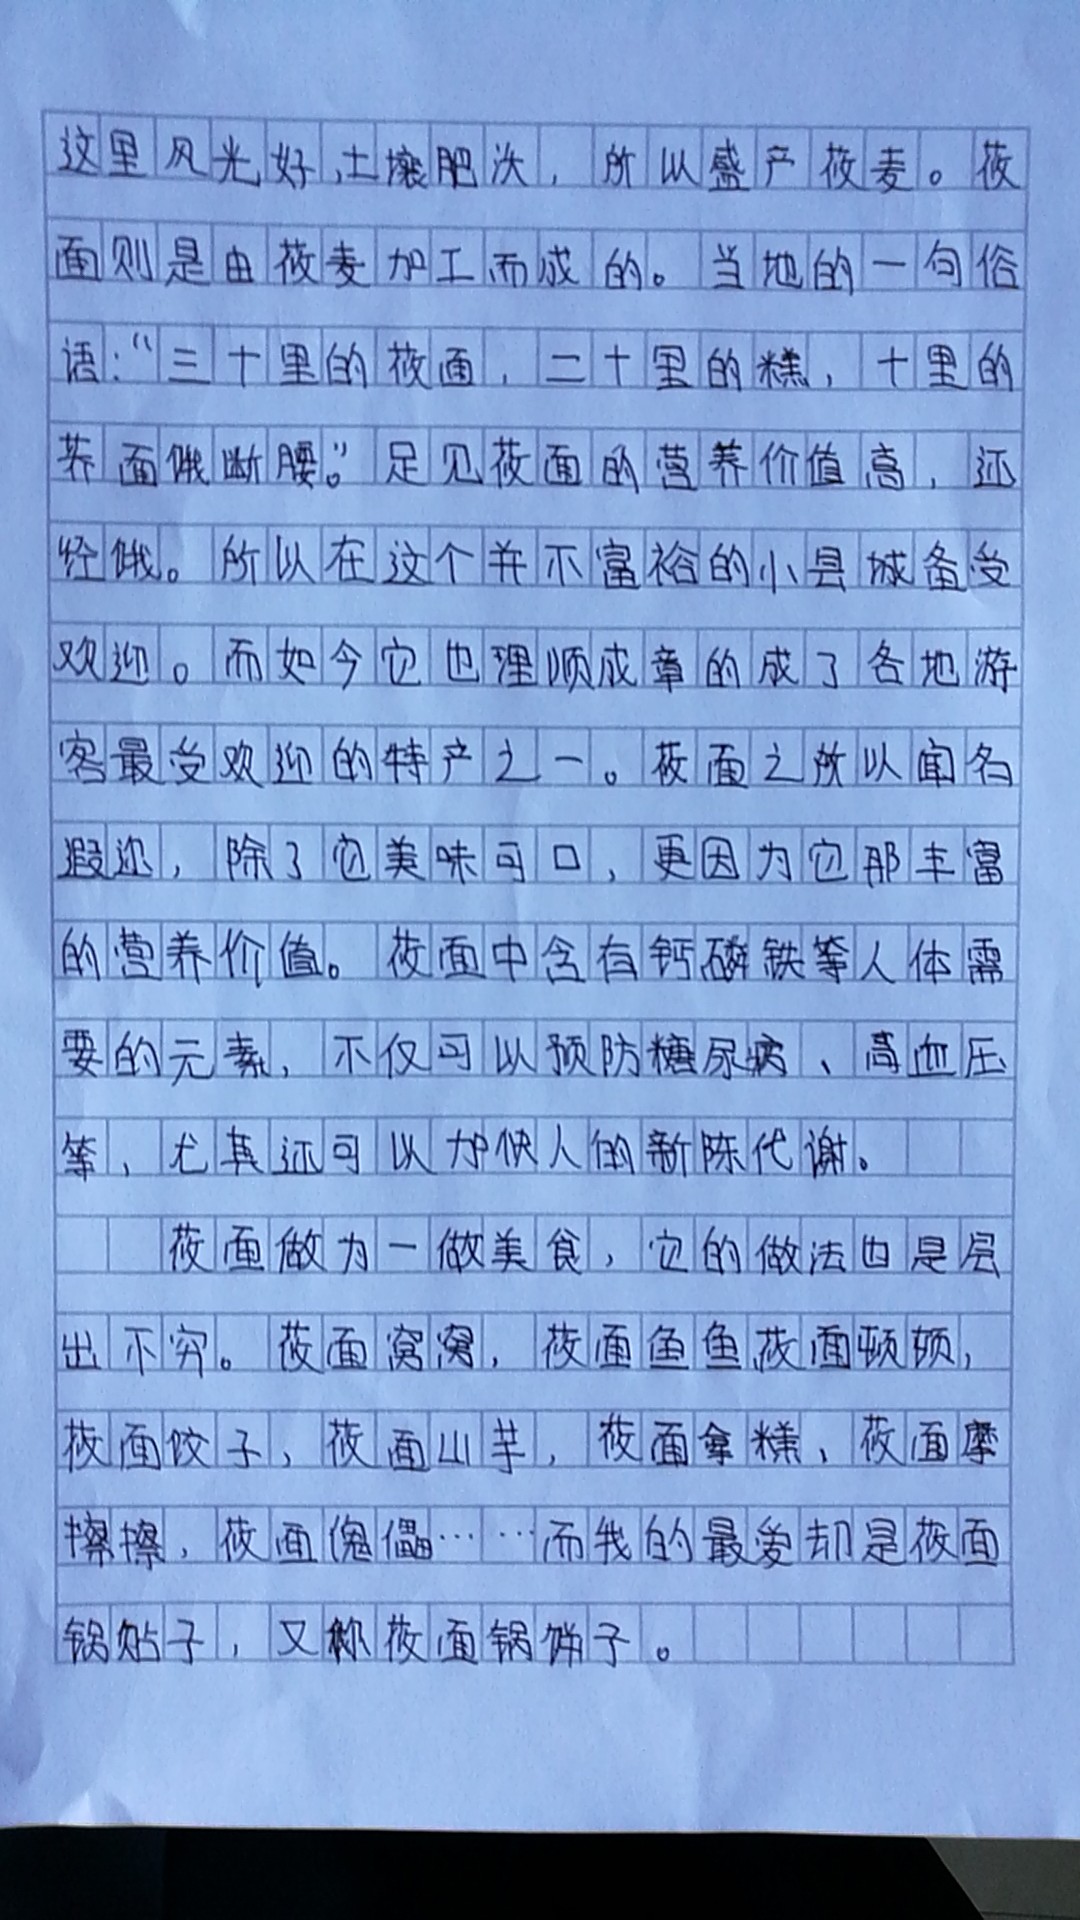 这里风光好,土壤肥沃，所以盛产莜麦。莜
面则是由莜麦加工而成的。当地的一句俗
语:“三十里的莜面，二十里的糕，十里的
荞面饿断腰。”足见莜面的营养价值高，还
经饿。所以在这个并不富裕的小县城备受
欢迎。而如今它也理顺成章的成了各地游
客最受欢迎的特产之一。莜面之所以闻名
遐迩，除了它美味可口，更因为它那丰富
的营养价值。莜面中含有钙磷铁等人体需
要的元素，不仅可以预防糖尿病、高血压
等，尤其还可以加快人的新陈代谢。
莜面做为一做美食，它的做法也是层
出不穷。莜面窝窝，莜面鱼鱼莜面顿顿，
莜面饺子、莜面山芋，莜面拿糕、莜面摩
擦擦，莜面傀儡……而我的最爱却是莜面
锅贴子，又称莜面锅饼子。